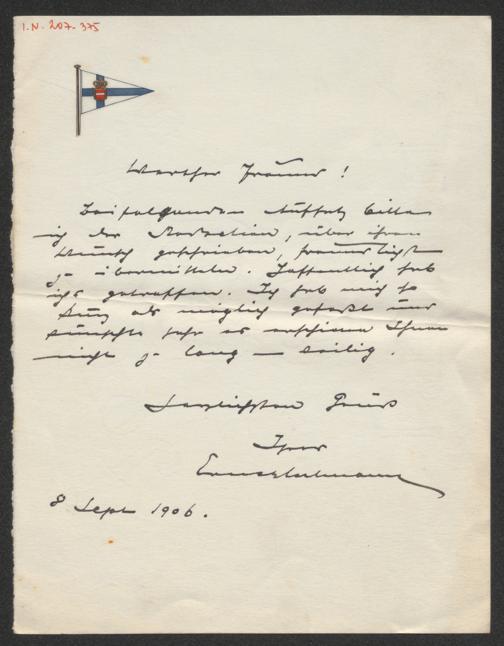 I.N. 207.375
Werther Freund!
Beifolgenden Aufsatz bitte
ich der Redaction, über ihren
Wunsch geschrieben, freundlichst
zu übermitteln. Hoffentlich hab
ichs getroffen. Ich hab mich so
kurz als möglich gefaßt und
wünschte sehr es erschiene Ihnen
nicht zu lang –
Herzlichsten Gruß
Ihr
8 Sept 1906.